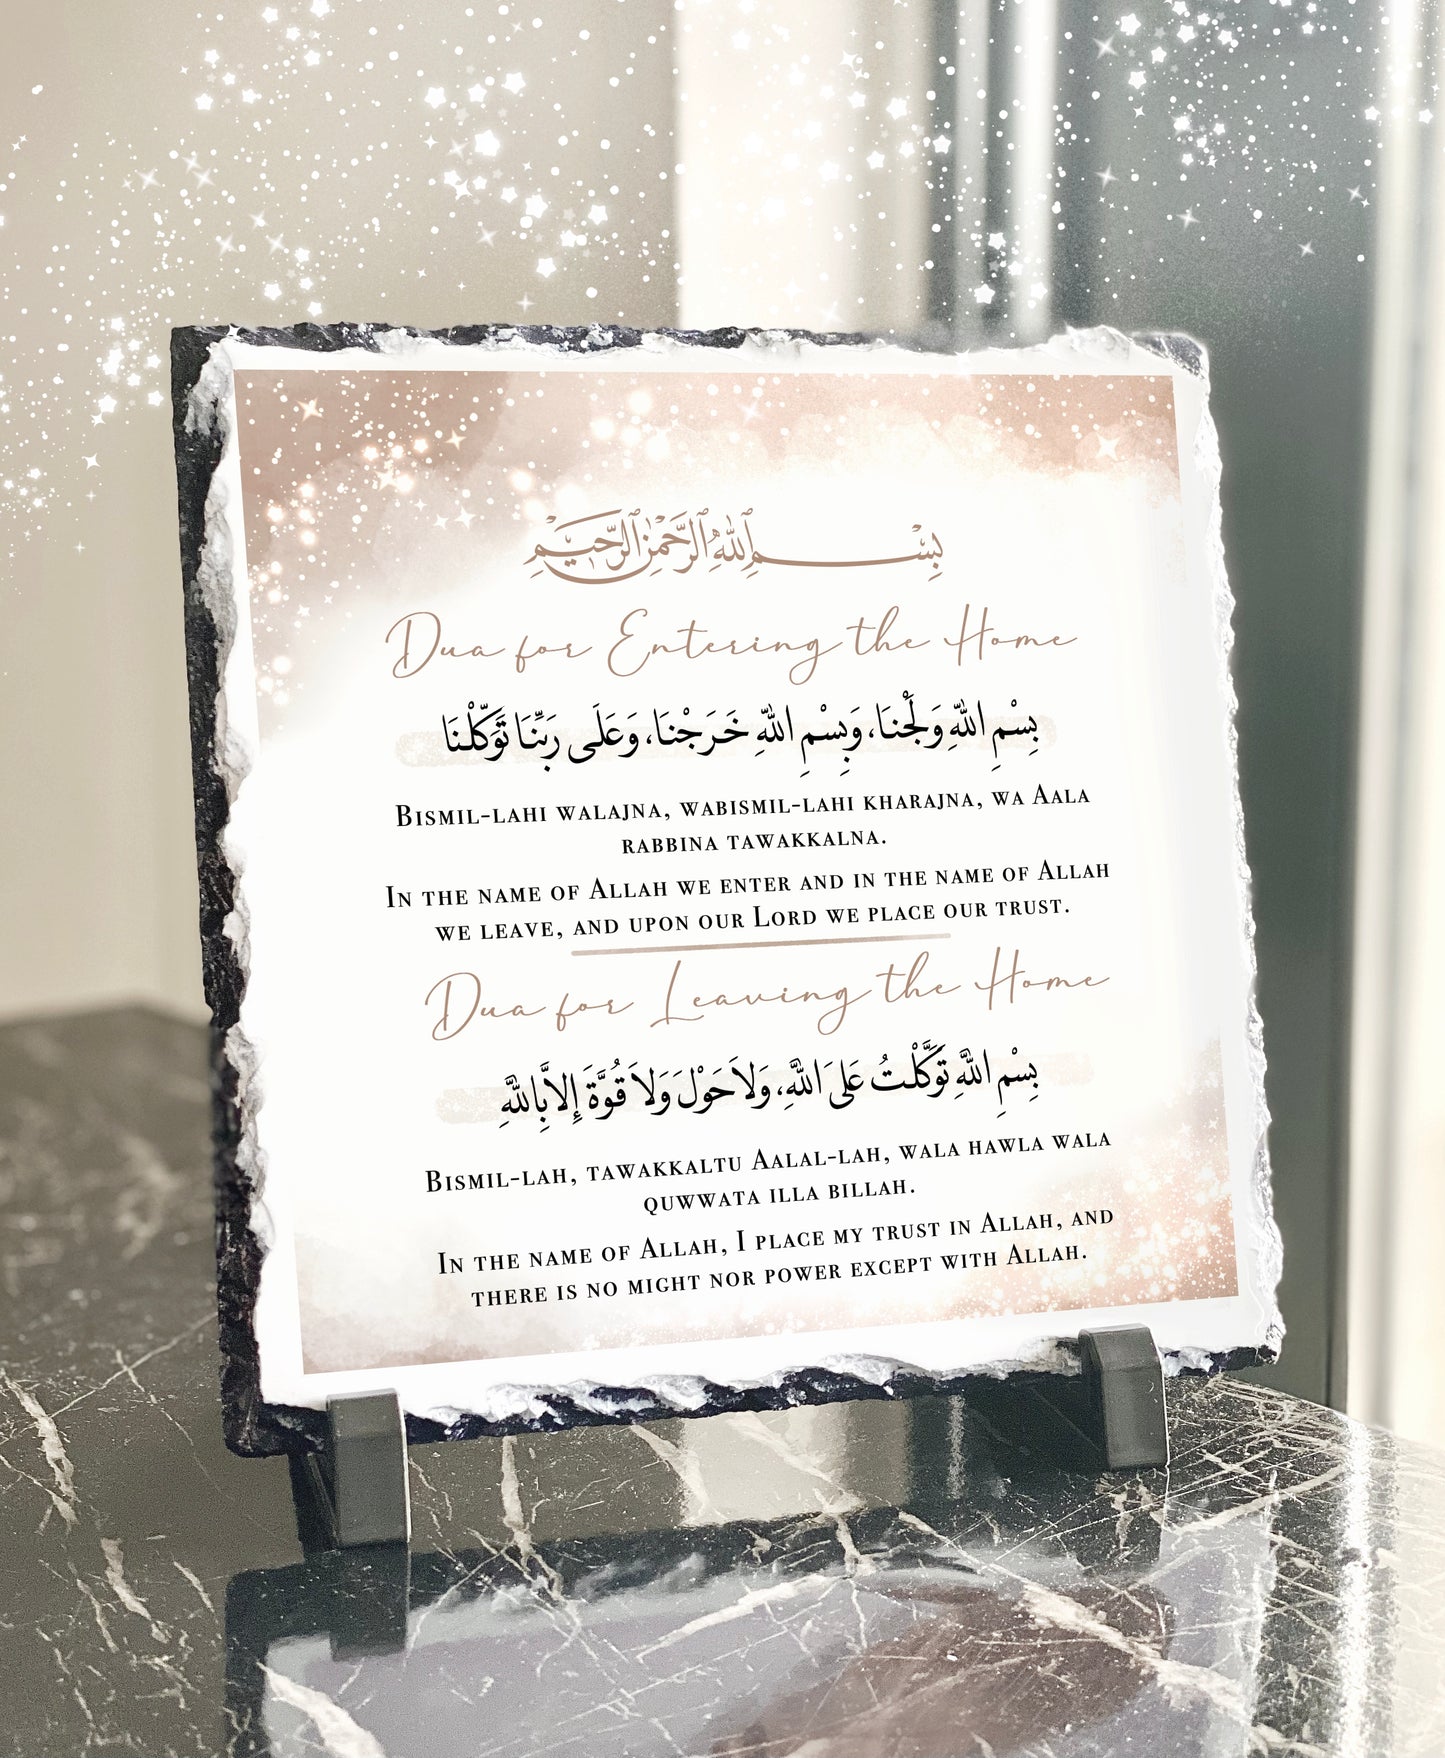 بِسْمِ اللهِ الرَّحْمٰنِ الرَّحِيْمِ
Dua for Entering the Home
بِسْمِ اللهِ وَلَجْنَا، وَبِسْمِ اللهِ خَرَجْنَا، وَعَلَى رَبِّنَا تَوَكَّلْنَا
Bismil-lahi walajna, wabismil-lahi kharajna, wa Aala
rabbina tawakkalna.
In the name of Allah we enter and in the name of Allah
we leave, and upon our Lord we place our trust.
Dua for Leaving the Home
بِسْمِ اللهِ تَوَكَّلْتُ عَلَى اللهِ، وَلاَ حَوْلَ وَلاَ قُوَّةَ إِلاَّ بِاللهِ
Bismil-lah, tawakkaltu Aalal-lah, wala hawla wala
quwwata illa billah.
In the name of Allah, I place my trust in Allah, and
there is no might nor power except with Allah.